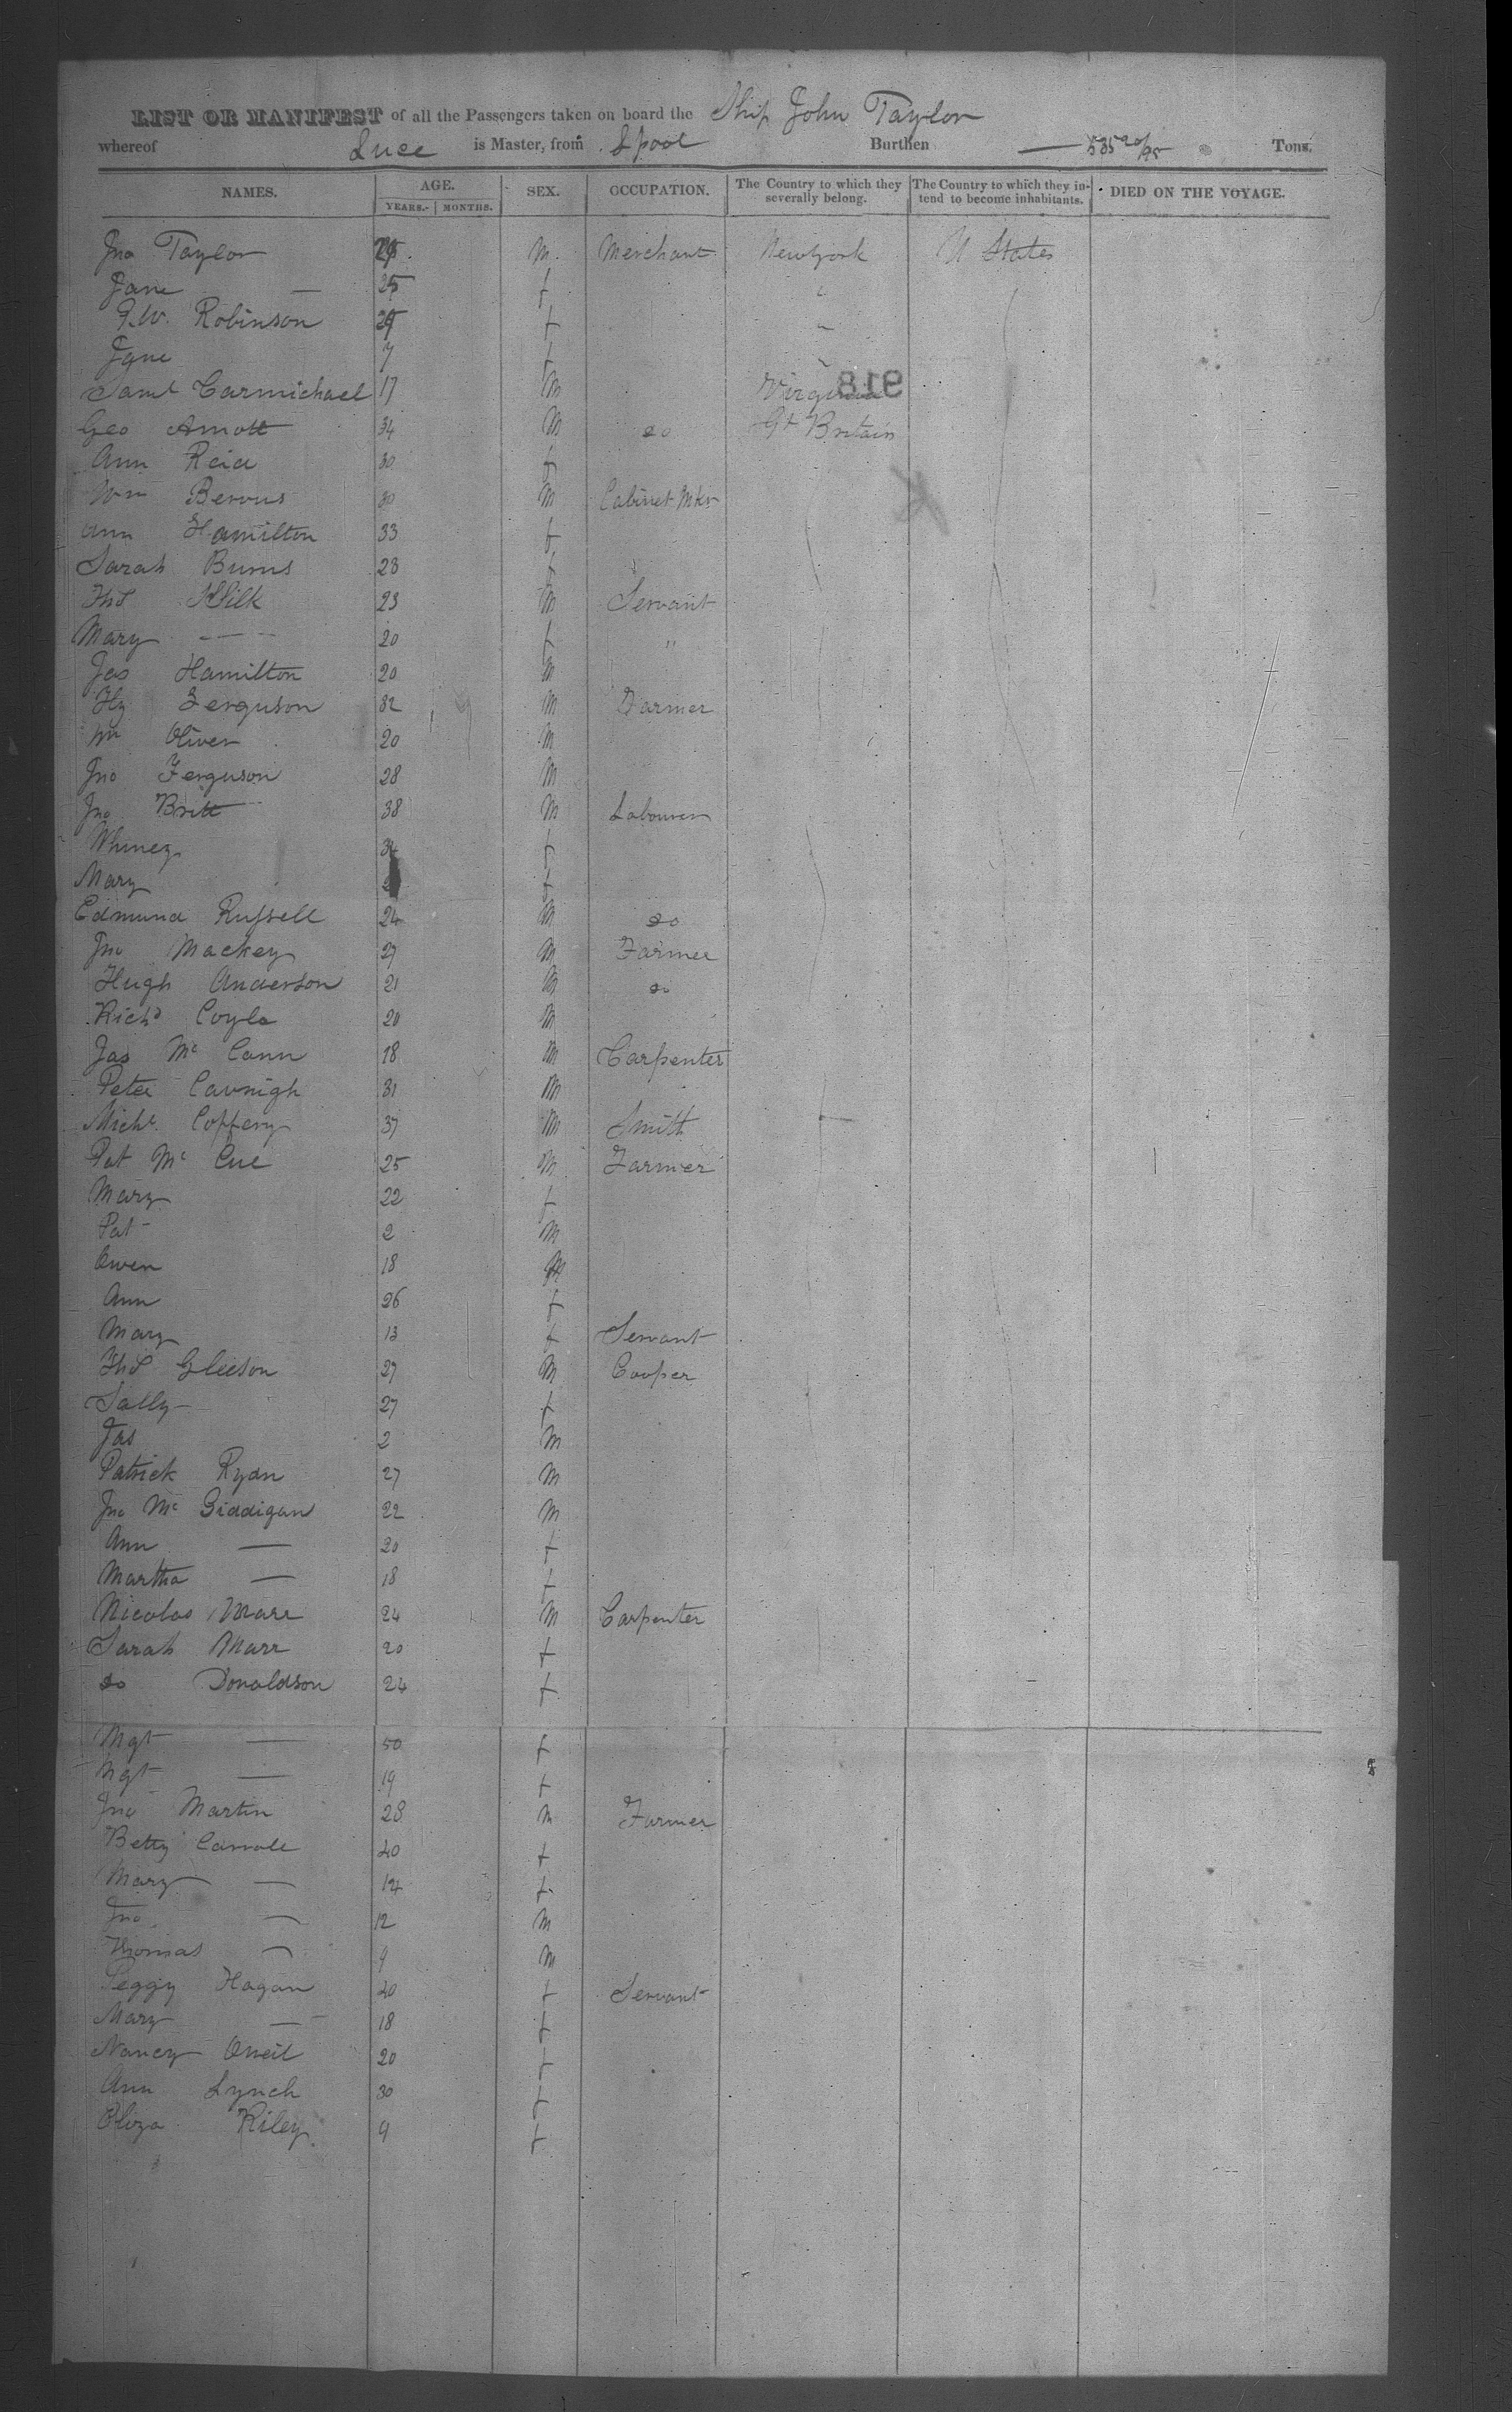 LIST OR MANIFEST of all the Passengers taken on board the Ship John Taylor
whereof Luce is Master, from Lpool Burthen — 535 20/95 Tons.
NAMES. AGE. YEARS. MONTHS. SEX. OCCUPATION. The Country to which they severally belong. The Country to which they intend to become inhabitants. DIED ON THE VOYAGE.
Jno Taylor M. Merchant New york U States
Jane — 25 f "
Robinson f "
Jane 7 f "
Saml Carmichael 17 M Virginia
819
Geo Arnott 34 M do Gt Britain
Ann Reid 30 f
Wm 30 M Cabinet Mkr
Ann Hamilton 33 f
Sarah Burns 23 f
Thos 23 M Servant
Mary — — — 20 f "
Jas Hamilton 20 M
Hy Ferguson 32 M Farmer
Wm Oliver 20 M
Jno Ferguson 28 M
Jno Britt 38 M Labourer
34 f
Mary f
Edmund Russell 24 M do
Jno Mackey 27 M Farmer
Hugh Anderson 21 M do
Richd Coyle 20 M
Jas Mc Cann 18 M Carpenter
Peter Cavnigh 31 M
Michl. Coffery 37 M Smith
Pat Mc Cue 25 M Farmer
Mary 22 f
Pat 2 M
Owen 18 M
Ann 26 f
Mary 13 f Servant
Thos Gleeson 27 M Cooper
Sally — 27 f
Jas 2 M
Patrick Ryan 27 M
Jno Mc Giddigan 22 M
Ann — 20 f
Martha — 18 f
Nicolas Marr 24 M Carpenter
Sarah Marr 20 f
do Donaldson 24 f
Mgt — 50 f
Mgt — 19 f
Jno Martin 28 M Farmer
Betty Carrole 40 f
Mary — 14 f
Jno — 12 M
Thomas — 9 M
Peggy Hagan 40 f Servant
Mary — 18 f
Nancy Oneil 20 f
Ann Lynch 30 f
Eliza Riley 9 f